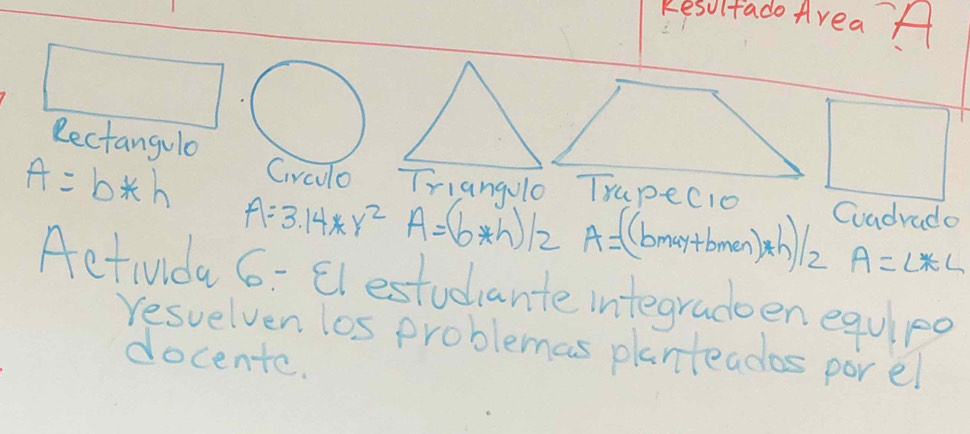 Resultado Area A
Rectangulo
A = b*h
Circulo
A=3.14*r²
Triangulo
A=(b*h)/2
Trapecio
A=((bmay+bmen)*h)/2
Cuadrado
A=L*L
Activida 6.- El estudiante integrado en equipo
resuelven los problemas planteados por el
docente.